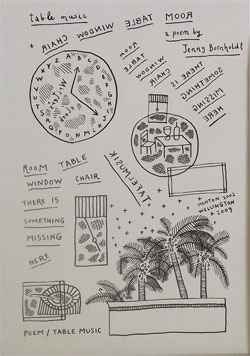 table music
ROOM TABLE WINDOW CHAIR +
a poem by
Jenny Bornholdt
ROOM
TABLE
WINDOW
CHAIR
THERE IS
SOMETHING
MISSING
HERE
TAFELMUSIK
ROOM TABLE
WINDOW CHAIR
THERE IS
SOMETHING
MISSING
HERE
MENTON 2002
WELLINGTON
+ 2009
POEM / TABLE MUSIC